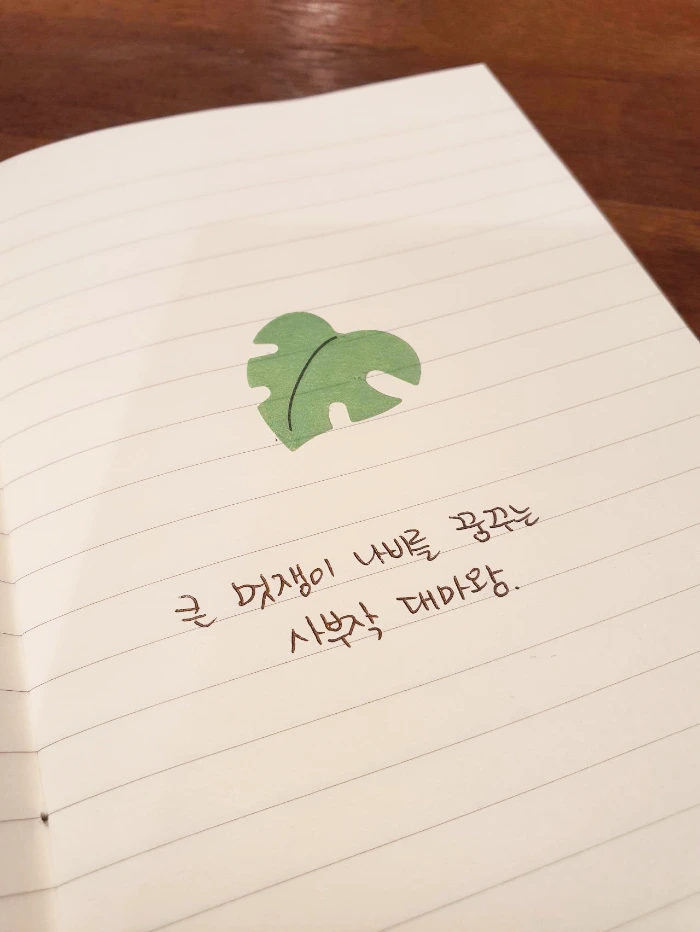 큰 멋쟁이 나비를 꿈꾸는
사부작 대마왕.